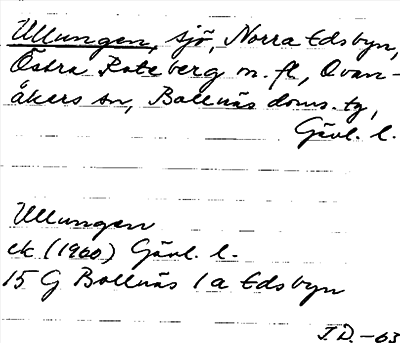 Ullungen, sjö, Norra Edsbyn,
Östra Roteberg m. fl., Ovan-
åkers sn, Bollnäs doms. tg,
Gävl. l.
Ullungen
ek (1960) Gävl. l.
15 G Bollnäs 1a Edsbyn
J.D. -63